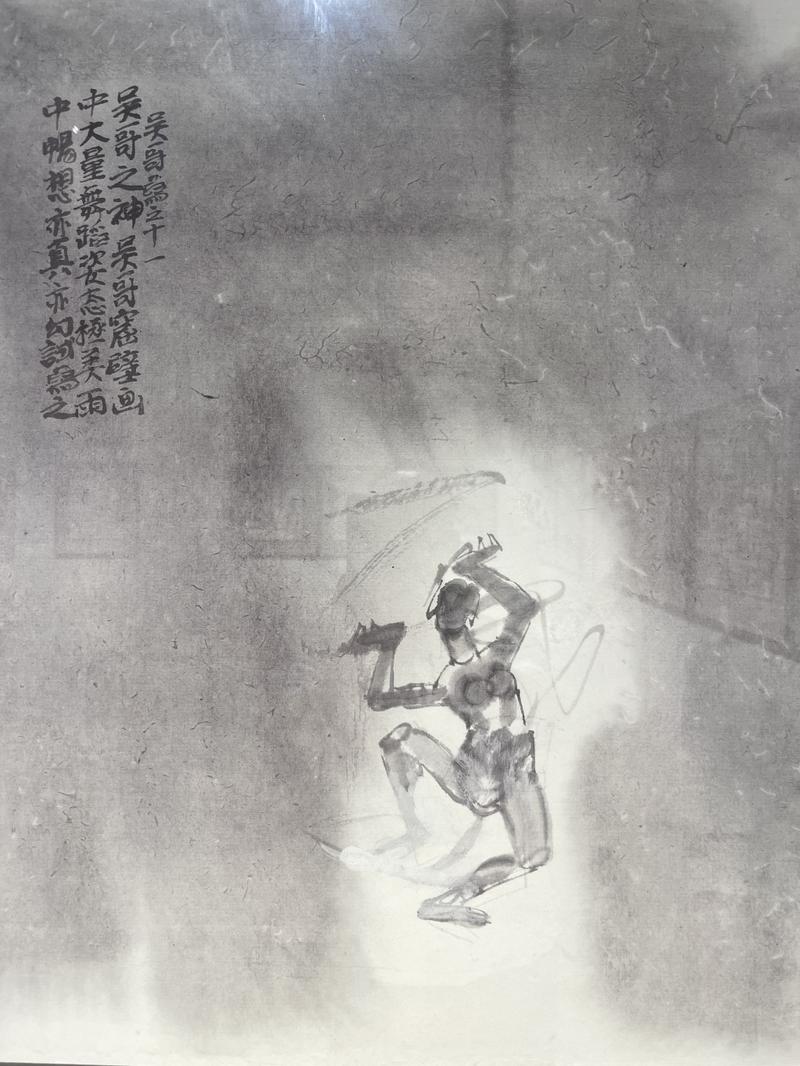 吴哥寫之十一
吴哥之神吴哥窟壁画
中大量舞蹈姿态極美雨
中暢想亦真亦幻試寫之